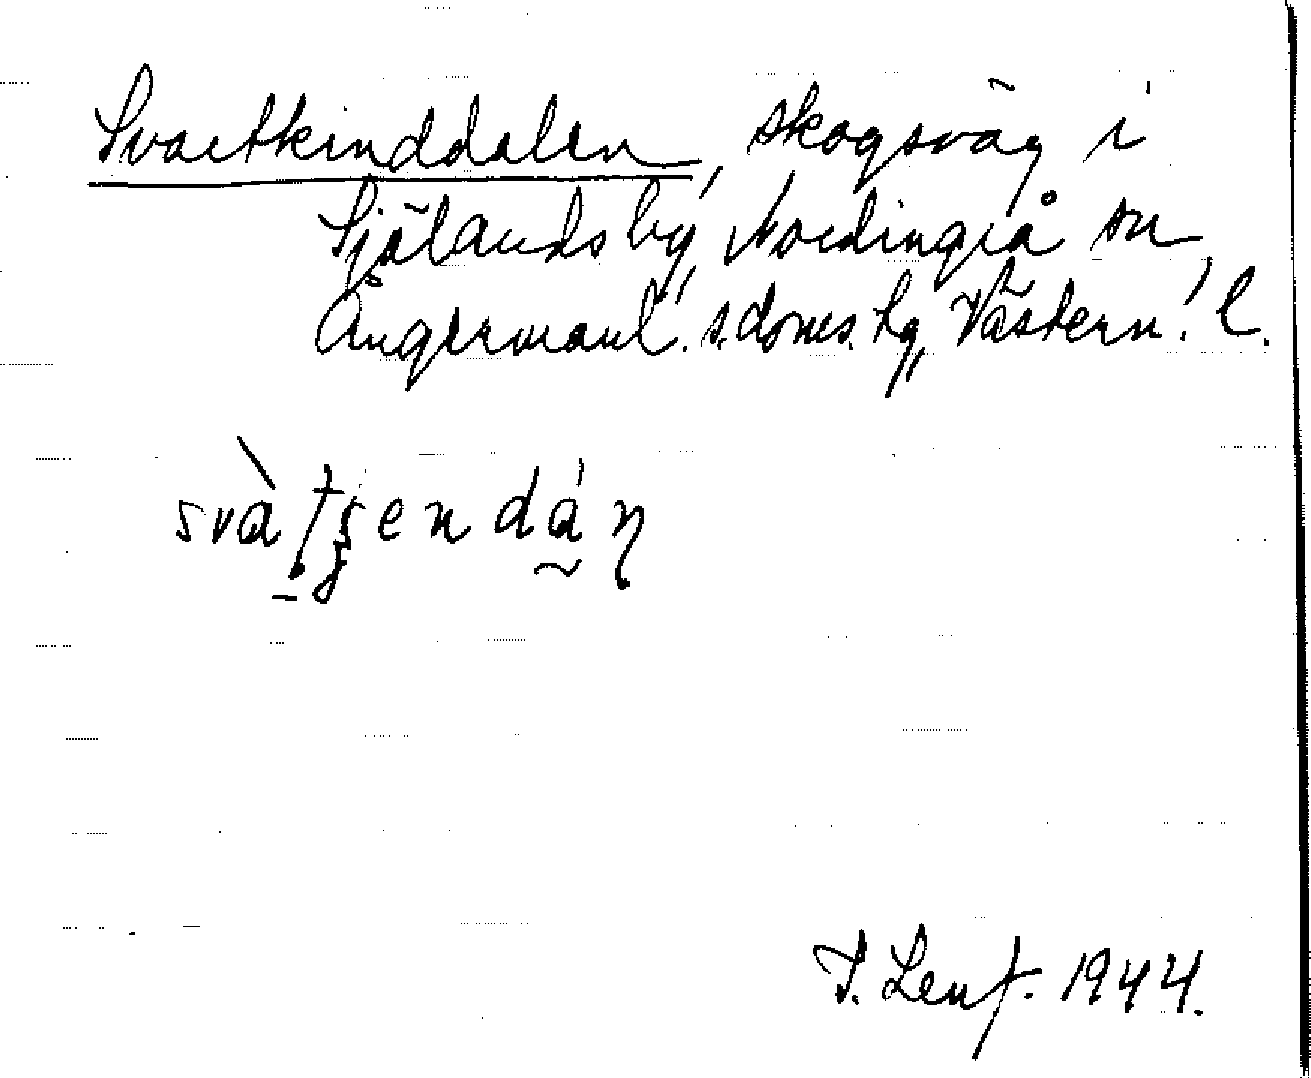 Svartkinddalen, skogsväg i
Själands by, Nordingrå sn,
Ångermanl. s. doms. hg, Västern. l.
svàtʂendáɳ
J. Lenf. 1944.